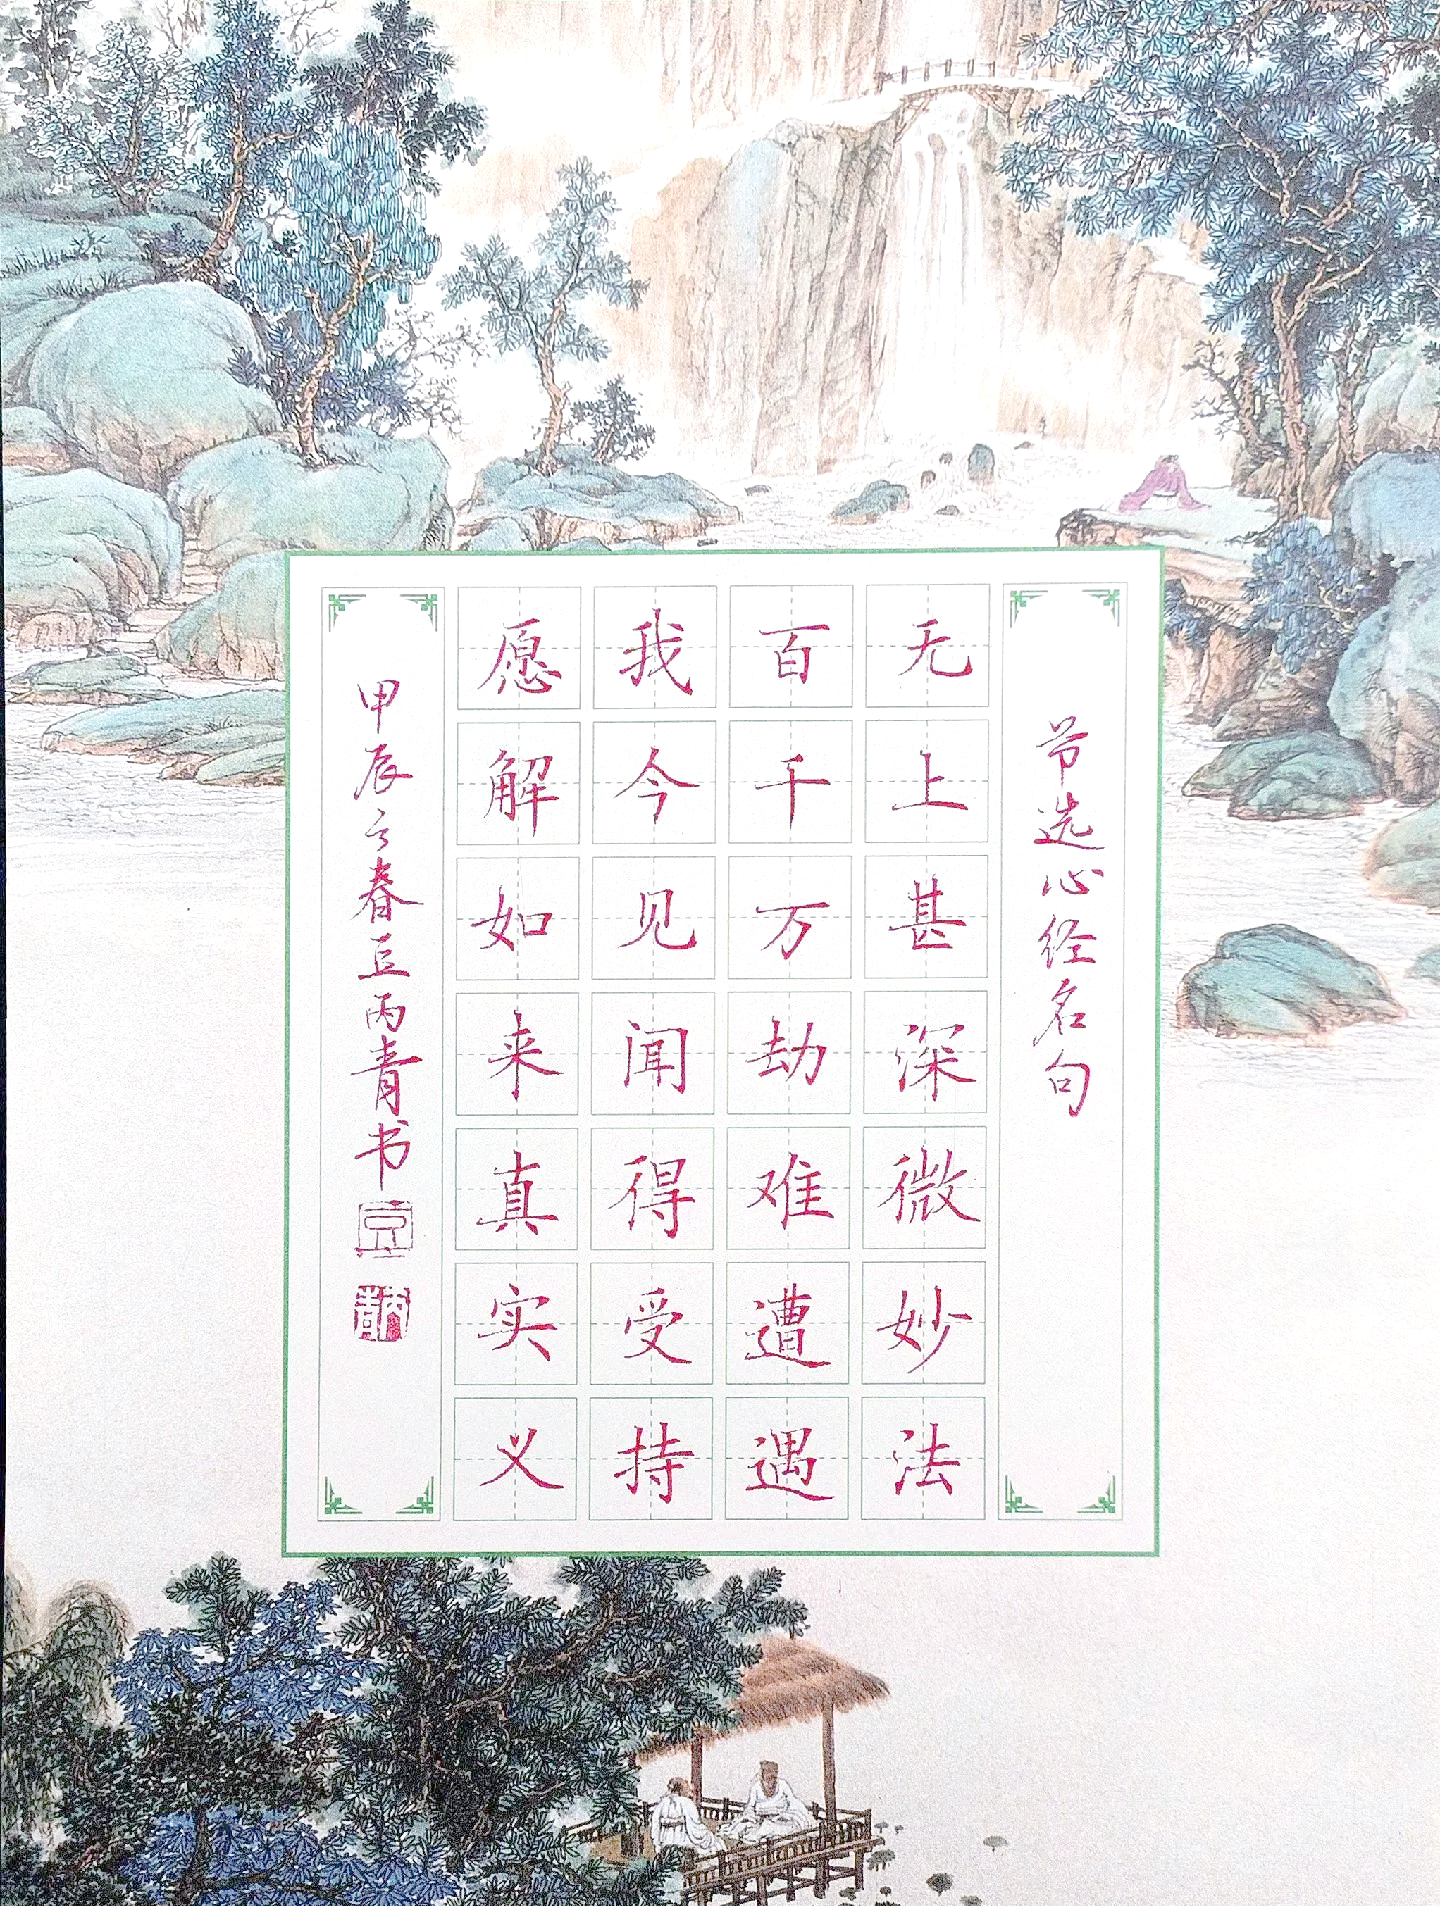 节选心经名句
无上甚深微妙法
百千万劫难遭遇
我今见闻得受持
愿解如来真实义
甲辰之春豆丙青书
豆
丙青